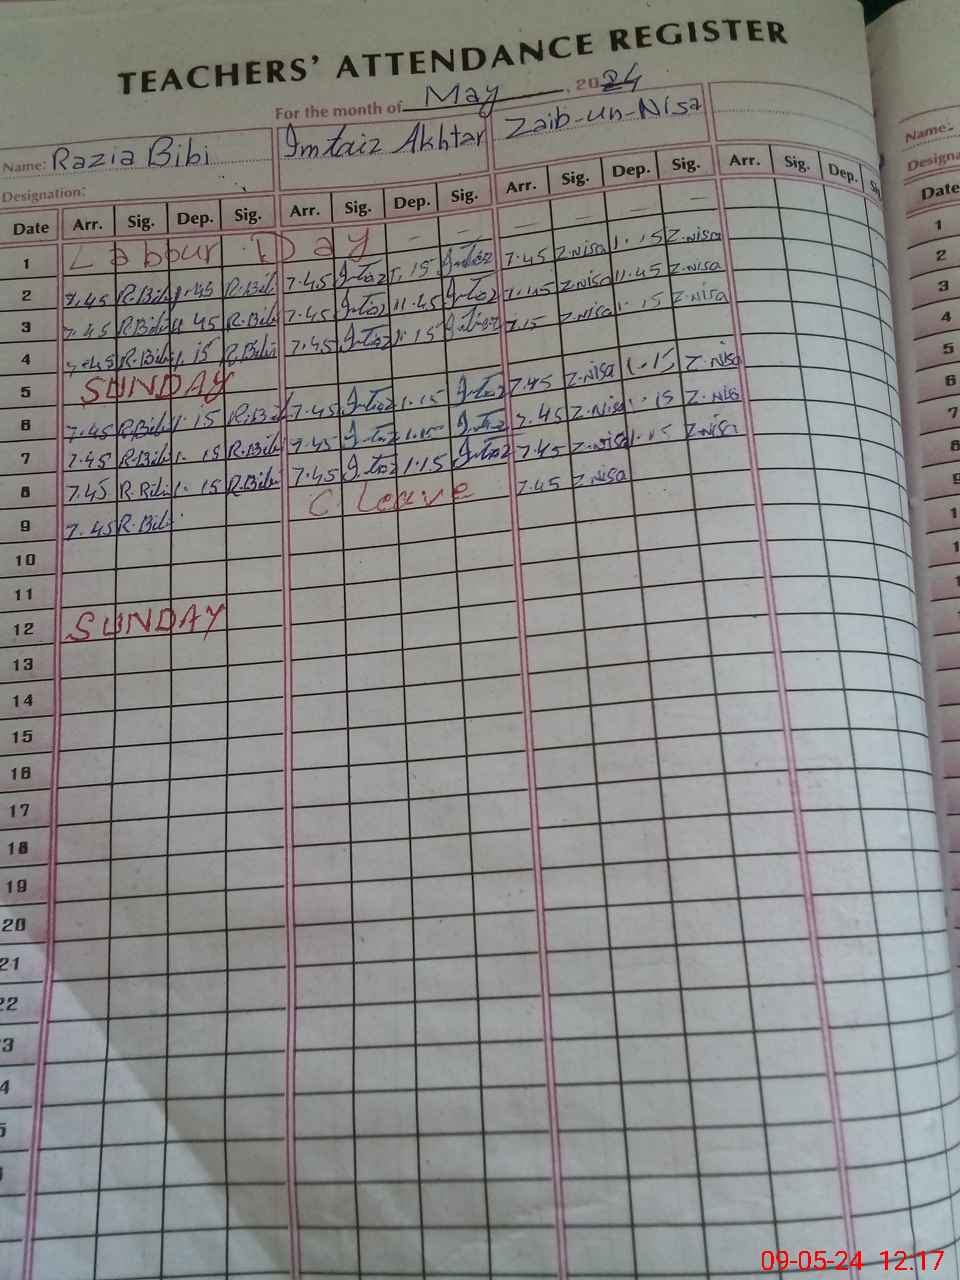 TEACHERS' ATTENDANCE REGISTER
For the month of May, 2024
Name: Razia Bibi Imtaiz Akhtar Zaib-un-Nisa Name:
Designation: Designa
Date Arr. Sig. Dep. Sig. Arr. Sig. Dep. Sig. Arr. Sig. Dep. Sig. Arr. Sig. Dep. Date
1 Labour Day — — — — — — 1
2 7.45 R.Bibi 7.45 1.15 7.45 Z.nisa 1.15 Z.nisa 2
3 7.45 R.Bibi 11.45 R.Bibi 7.45 11.45 Z.nisa 11.45 Z.nisa 3
4 R.Bibi 1.15 R.Bibi 7.45 1.15 Z.nisa 1.15 Z.nisa 4
5 SUNDAY 5
6 7.45 R.Bibi 1.15 R.Bibi 7.45 1.15 7.45 Z.nisa 1.15 Z.nisa 6
7 7.45 R.Bibi 1.15 R.Bibi 7.45 1.15 7.45 Z.nisa 1.15 Z.nisa 7
8 7.45 R.Bibi 1.15 R.Bibi 7.45 1.15 7.45 Z.nisa 1.15 Z.nisa 8
9 7.45 R.Bibi C. Leave 7.45 Z.nisa 9
10
11
12 SUNDAY
13
14
15
16
17
18
19
20
21
22
3
4
5
09-05-24 12.17